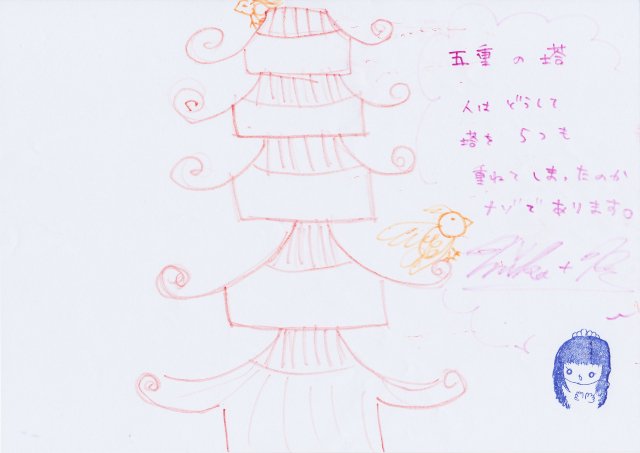 五重の塔
人はどうして
塔を5つも
重ねてしまったのか
ナゾであります。